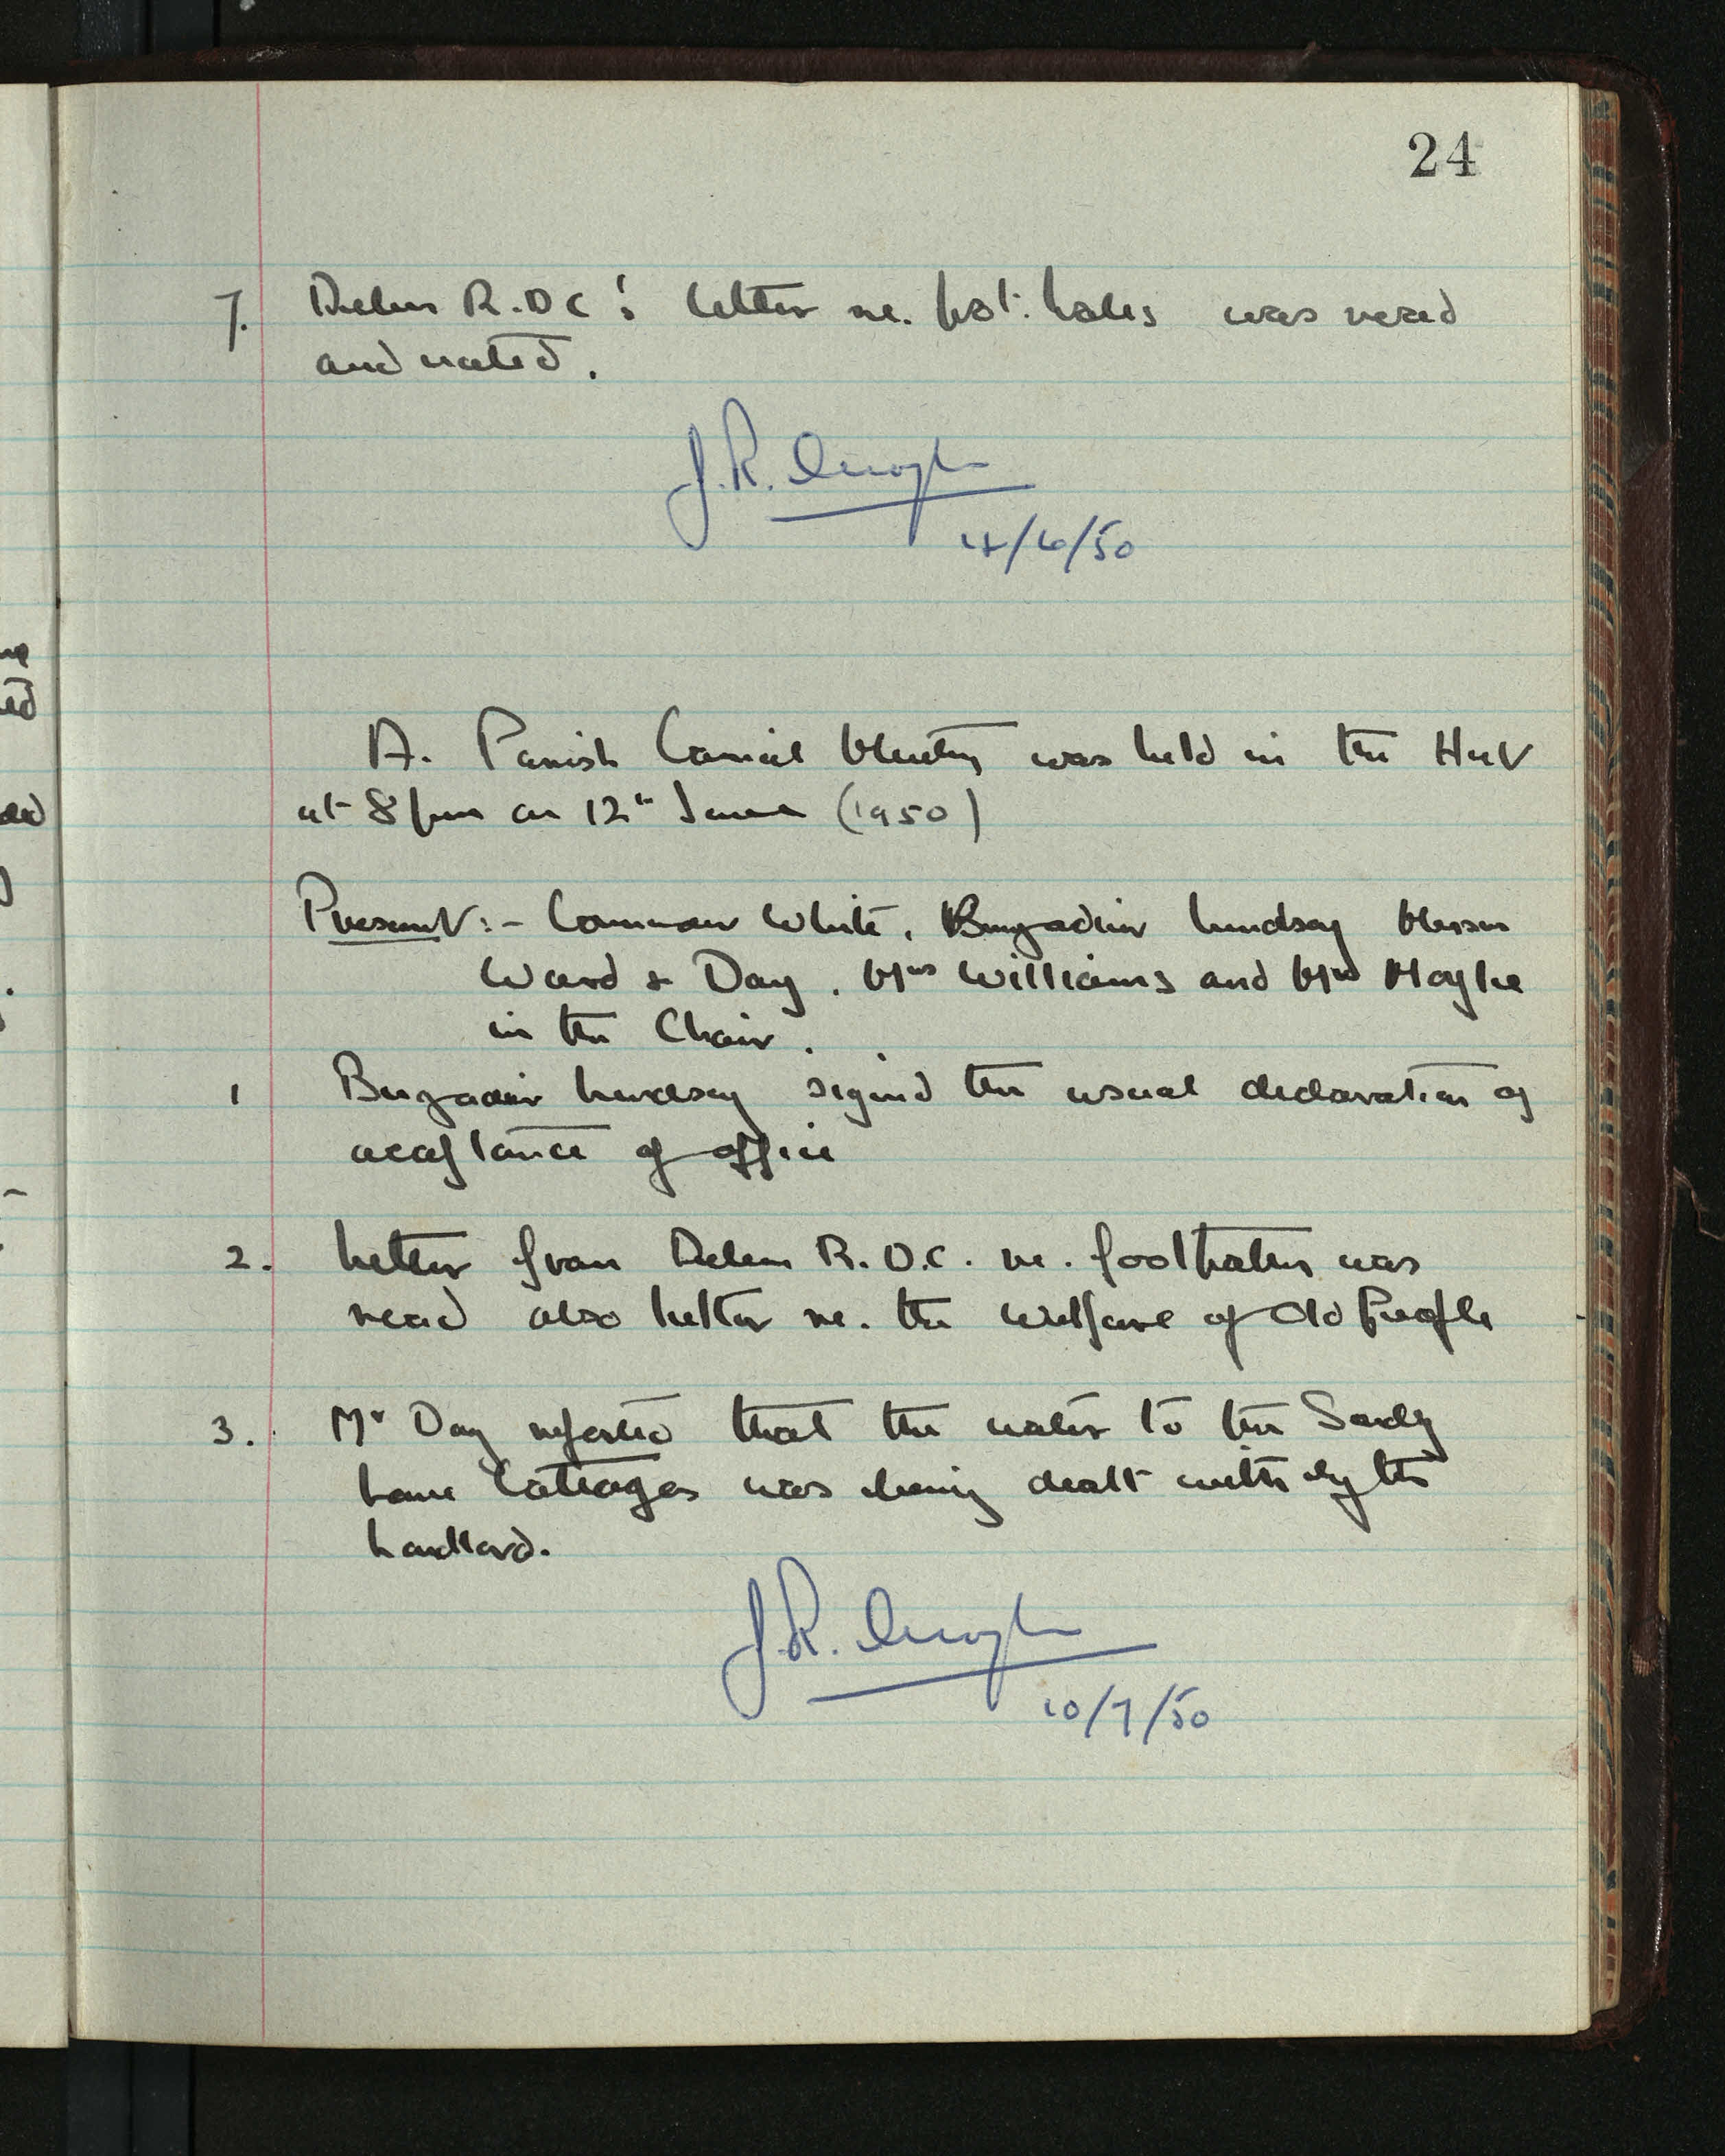 24
7. Deben R.D.C's letter re. pot: holes was read
and noted.
J.R.
/6/50
A. Parish Council Meeting was held in the Hut
at 8 pm on 12th June (1950)
Present:- Commander White, Brigadier Lindsay Messrs
Ward & Day. Mrs Williams and
in the Chair.
1 Brigadier Lindsay signed the usual declaration of
acceptance of office
2. Letter from Deben R.D.C. re. footpaths was
read also letter re. the Welfare of Old People
3. Mr Day reported that the water to the Sandy
Lane Cottages was being dealt with by the
Landlord.
J.R.
10/7/50